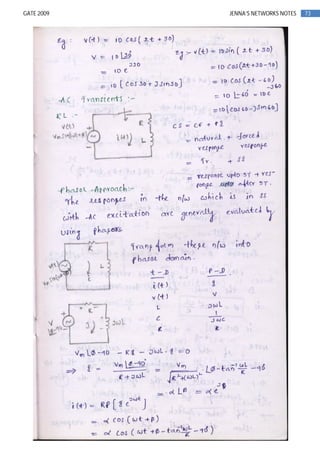 GATE 2009 JENNA'S NETWORKS NOTES 73
Eg : v(t) = 10 cos(2t + 30)
V = 10∠30
= 10 e^j30
= 10 [cos 30 + J sin 30]
Eg :- v(t) = 10 sin(2t + 30)
= 10 cos(2t + 30 - 90)
= 10 cos(2t - 60)
= 10 ∠-60 = 10 e^-j60
= 10 [cos 60 - J sin 60]
AC Transients :-
RL :-
v(t)
R
i(t)
L
CS = CF + PI
= natural + forced
response response
= Tr. + SS
= response upto 5T + res-
ponse after 5T.
Phasor Approach:-
The responses in the n/w which is in SS
with AC excitation are generally evaluated by
using phasors
R
L
Transform these n/w into
phasor domain.
t - D P - D
i(t) I
v(t) V
L JωL
C 1/JωC
R R
V
R
JωL
Vm∠Ø-90 - RI - JωL·I = 0
⇒ I = Vm∠Ø-90 / R + JωL = Vm / √R²+(ωL)² ∠Ø - tan⁻¹ ωL/R - 90
= α∠β = α e^jβ
i(t) = RP [I e^jωt]
= α cos(ωt + β)
= α cos(ωt + Ø - tan⁻¹ ωL/R - 90)